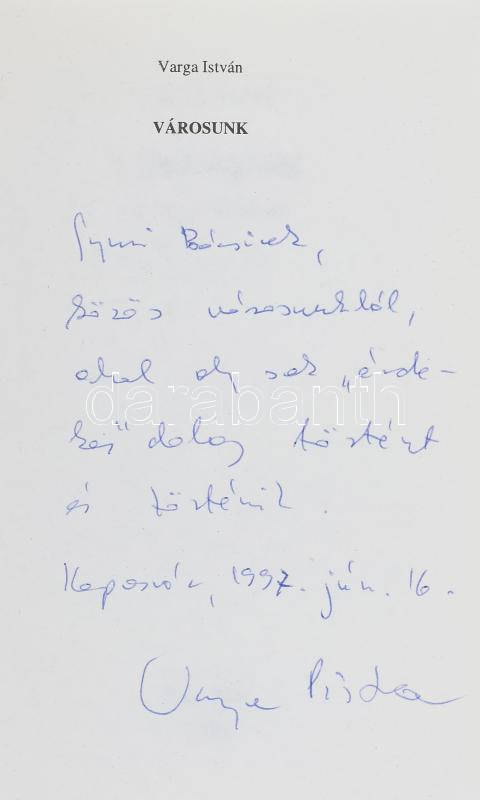 Varga István
VÁROSUNK
Gyuri Bácsinak,
közös városunkból,
ahol oly sok „érde-
kes" dolog történt
és történik.
darabanth
Kaposvár, 1997. jún. 16.
Varga Pista